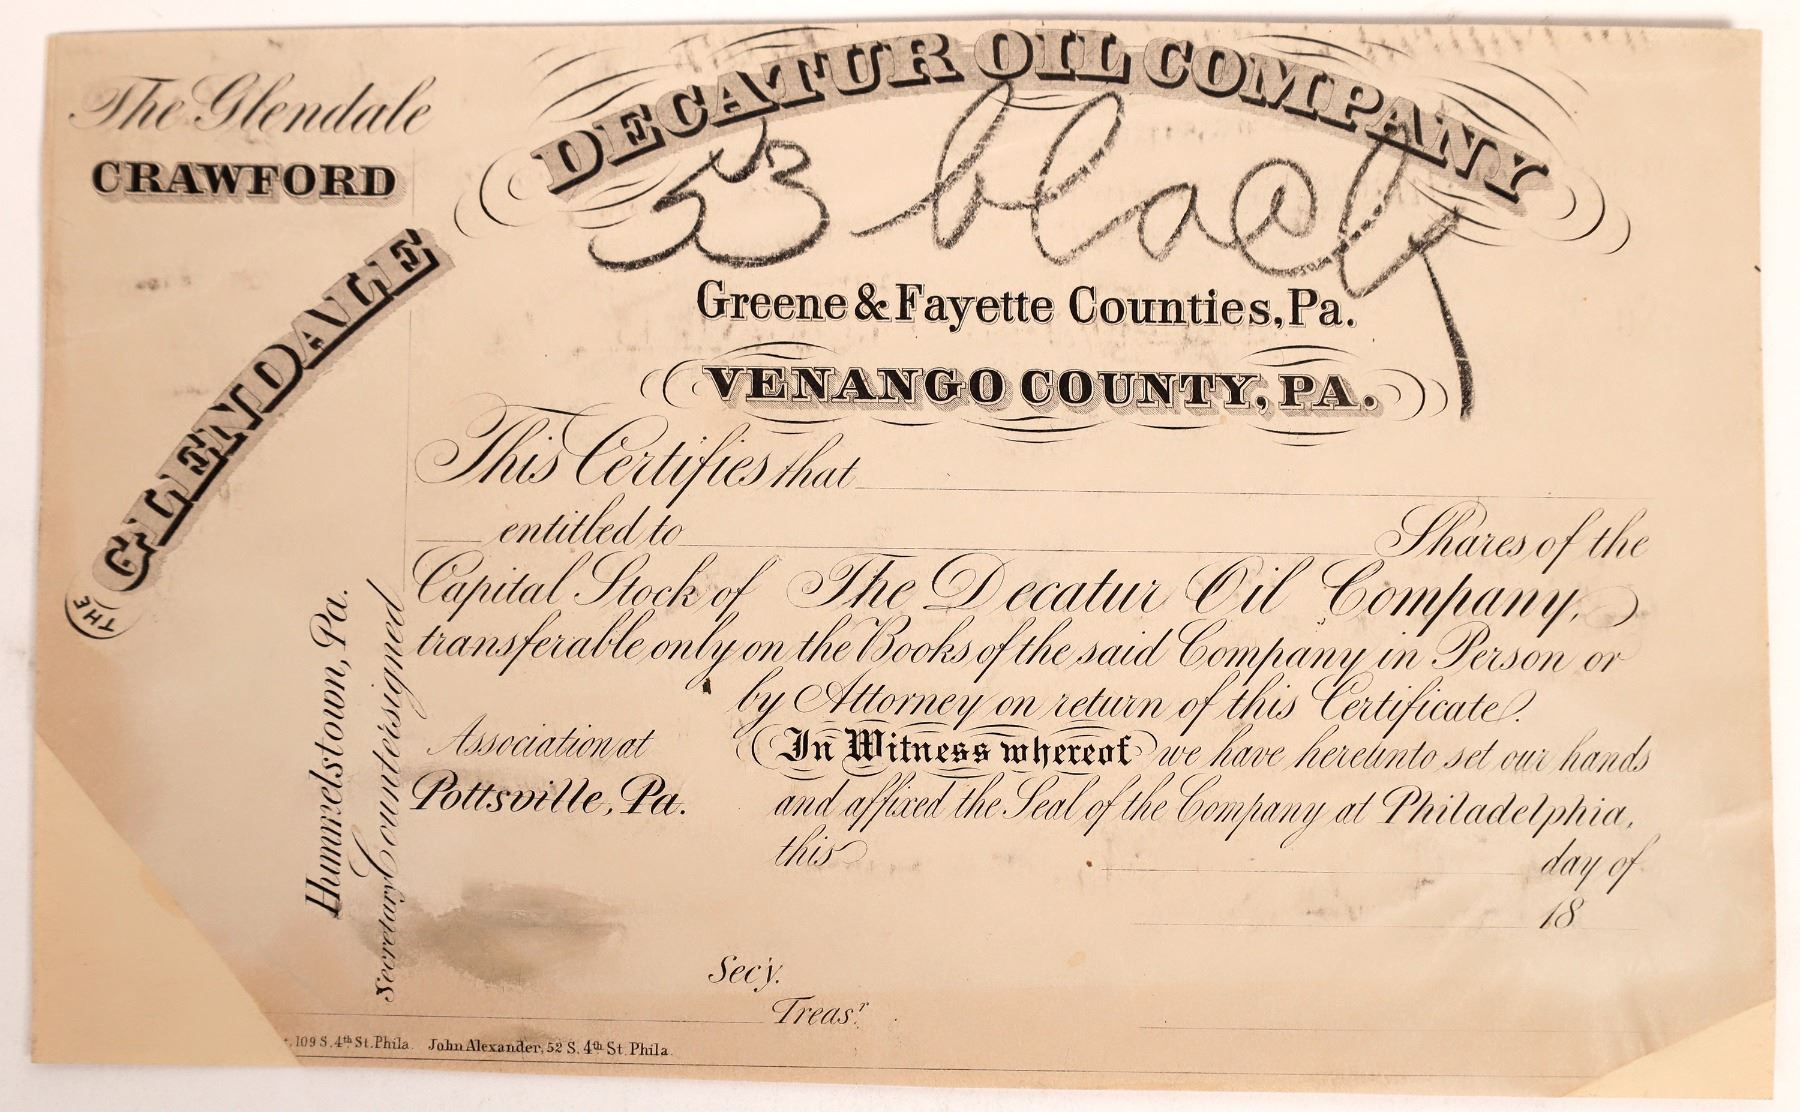 The Glendale
CRAWFORD
DECATUR OIL COMPANY
53 black
Greene & Fayette Counties, Pa.
VENANGO COUNTY, PA.
THE GLENDALE
This Certifies that
entitled to Shares of the
Capital Stock of The Decatur Oil Company,
transferable only on the Books of the said Company in Person or
by Attorney on return of this Certificate.
Hummelstown, Pa.
Secretary Countersigned
Association at
Pottsville, Pa.
In Witness whereof we have hereunto set our hands
and affixed the Seal of the Company at Philadelphia,
this day of
18
Secy.
Treasr
109 S. 4th St. Phila. John Alexander, 52 S. 4th St. Phila.